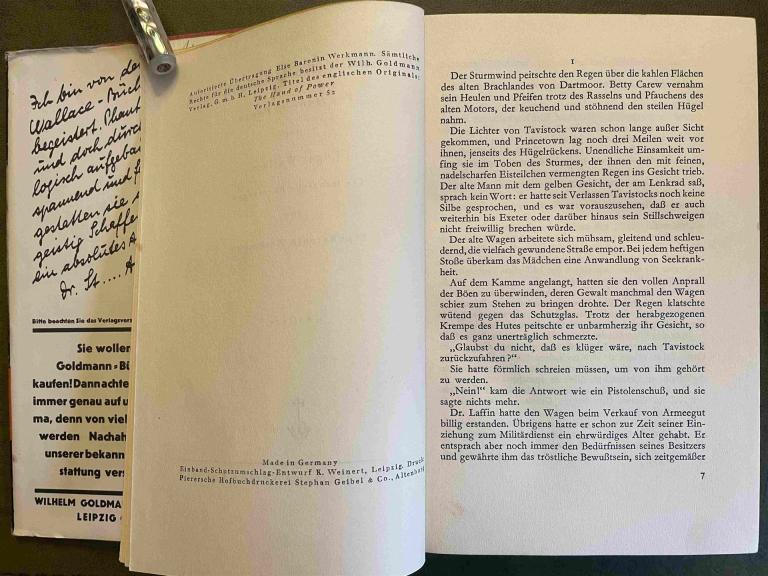 Ich bin von de
Wallace-Büch
begeistert. Phant
und doch durch
logisch aufgebau
spannend und f
gestatten sie
geistig Schaffe
ein absolutes A
Dr. St.... A
Bitte beachten Sie das Verlagsver
Sie wollen
Goldmann-Bü
kaufen! Dann achte
immer genau auf u
ma, denn von viel
werden Nachah
unserer bekann
stattung vers
WILHELM GOLDMA
LEIPZIG
Autorisierte Übertragung Else Baronin Werkmann. Sämtliche
Rechte für die deutsche Sprache besitzt der Wilh. Goldmann
Verlag, G. m. b. H. Leipzig. Titel des englischen Originals:
The Hand of Power
Verlagsnummer 52
Made in Germany
Einband-Schutzumschlag-Entwurf K. Weinert, Leipzig. Druck
Pierersche Hofbuchdruckerei Stephan Geibel & Co., Altenburg
I
Der Sturmwind peitschte den Regen über die kahlen Flächen
des alten Brachlandes von Dartmoor. Betty Carew vernahm
sein Heulen und Pfeifen trotz des Rasselns und Pfauchens des
alten Motors, der keuchend und stöhnend den steilen Hügel
nahm.
Die Lichter von Tavistock waren schon lange außer Sicht
gekommen, und Princetown lag noch drei Meilen weit vor
ihnen, jenseits des Hügelrückens. Unendliche Einsamkeit um-
fing sie im Toben des Sturmes, der ihnen den mit feinen,
nadelscharfen Eisteilchen vermengten Regen ins Gesicht trieb.
Der alte Mann mit dem gelben Gesicht, der am Lenkrad saß,
sprach kein Wort: er hatte seit Verlassen Tavistocks noch keine
Silbe gesprochen, und es war vorauszusehen, daß er auch
weiterhin bis Exeter oder darüber hinaus sein Stillschweigen
nicht freiwillig brechen würde.
Der alte Wagen arbeitete sich mühsam, gleitend und schleu-
dernd, die vielfach gewundene Straße empor. Bei jedem heftigen
Stoße überkam das Mädchen eine Anwandlung von Seekrank-
heit.
Auf dem Kamme angelangt, hatten sie den vollen Anprall
der Böen zu überwinden, deren Gewalt manchmal den Wagen
schier zum Stehen zu bringen drohte. Der Regen klatschte
wütend gegen das Schutzglas. Trotz der herabgezogenen
Krempe des Hutes peitschte er unbarmherzig ihr Gesicht, so
daß es ganz unerträglich schmerzte.
„Glaubst du nicht, daß es klüger wäre, nach Tavistock
zurückzufahren?“
Sie hatte förmlich schreien müssen, um von ihm gehört
zu werden.
„Nein!“ kam die Antwort wie ein Pistolenschuß, und sie
sagte nichts mehr.
Dr. Laffin hatte den Wagen beim Verkauf von Armeegut
billig erstanden. Übrigens hatte er schon zur Zeit seiner Ein-
ziehung zum Militärdienst ein ehrwürdiges Alter gehabt. Er
entsprach aber noch immer den Bedürfnissen seines Besitzers
und gewährte ihm das tröstliche Bewußtsein, sich zeitgemäßer
7